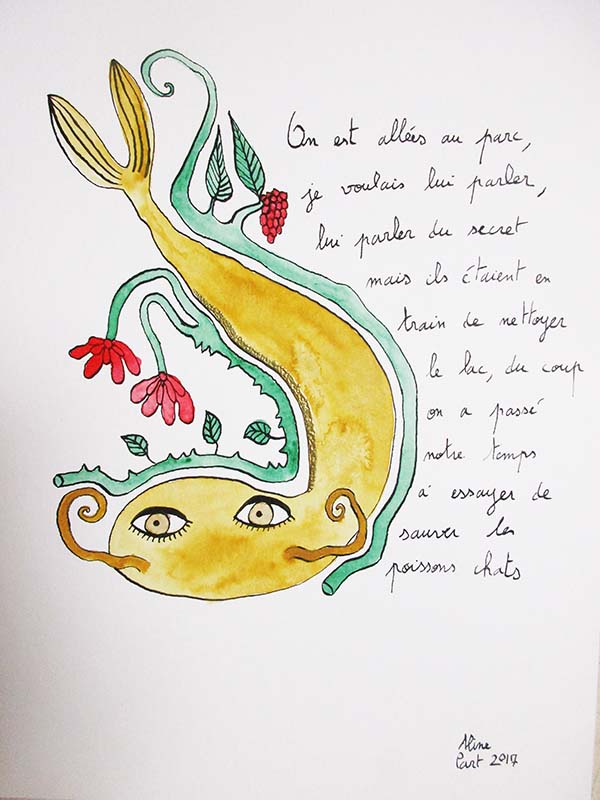 On est allées au parc,
je voulais lui parler,
lui parler du secret
mais ils étaient en
train de nettoyer
le lac, du coup
on a passé
notre temps
à essayer de
sauver les
poissons chats
Aline
Part 2017